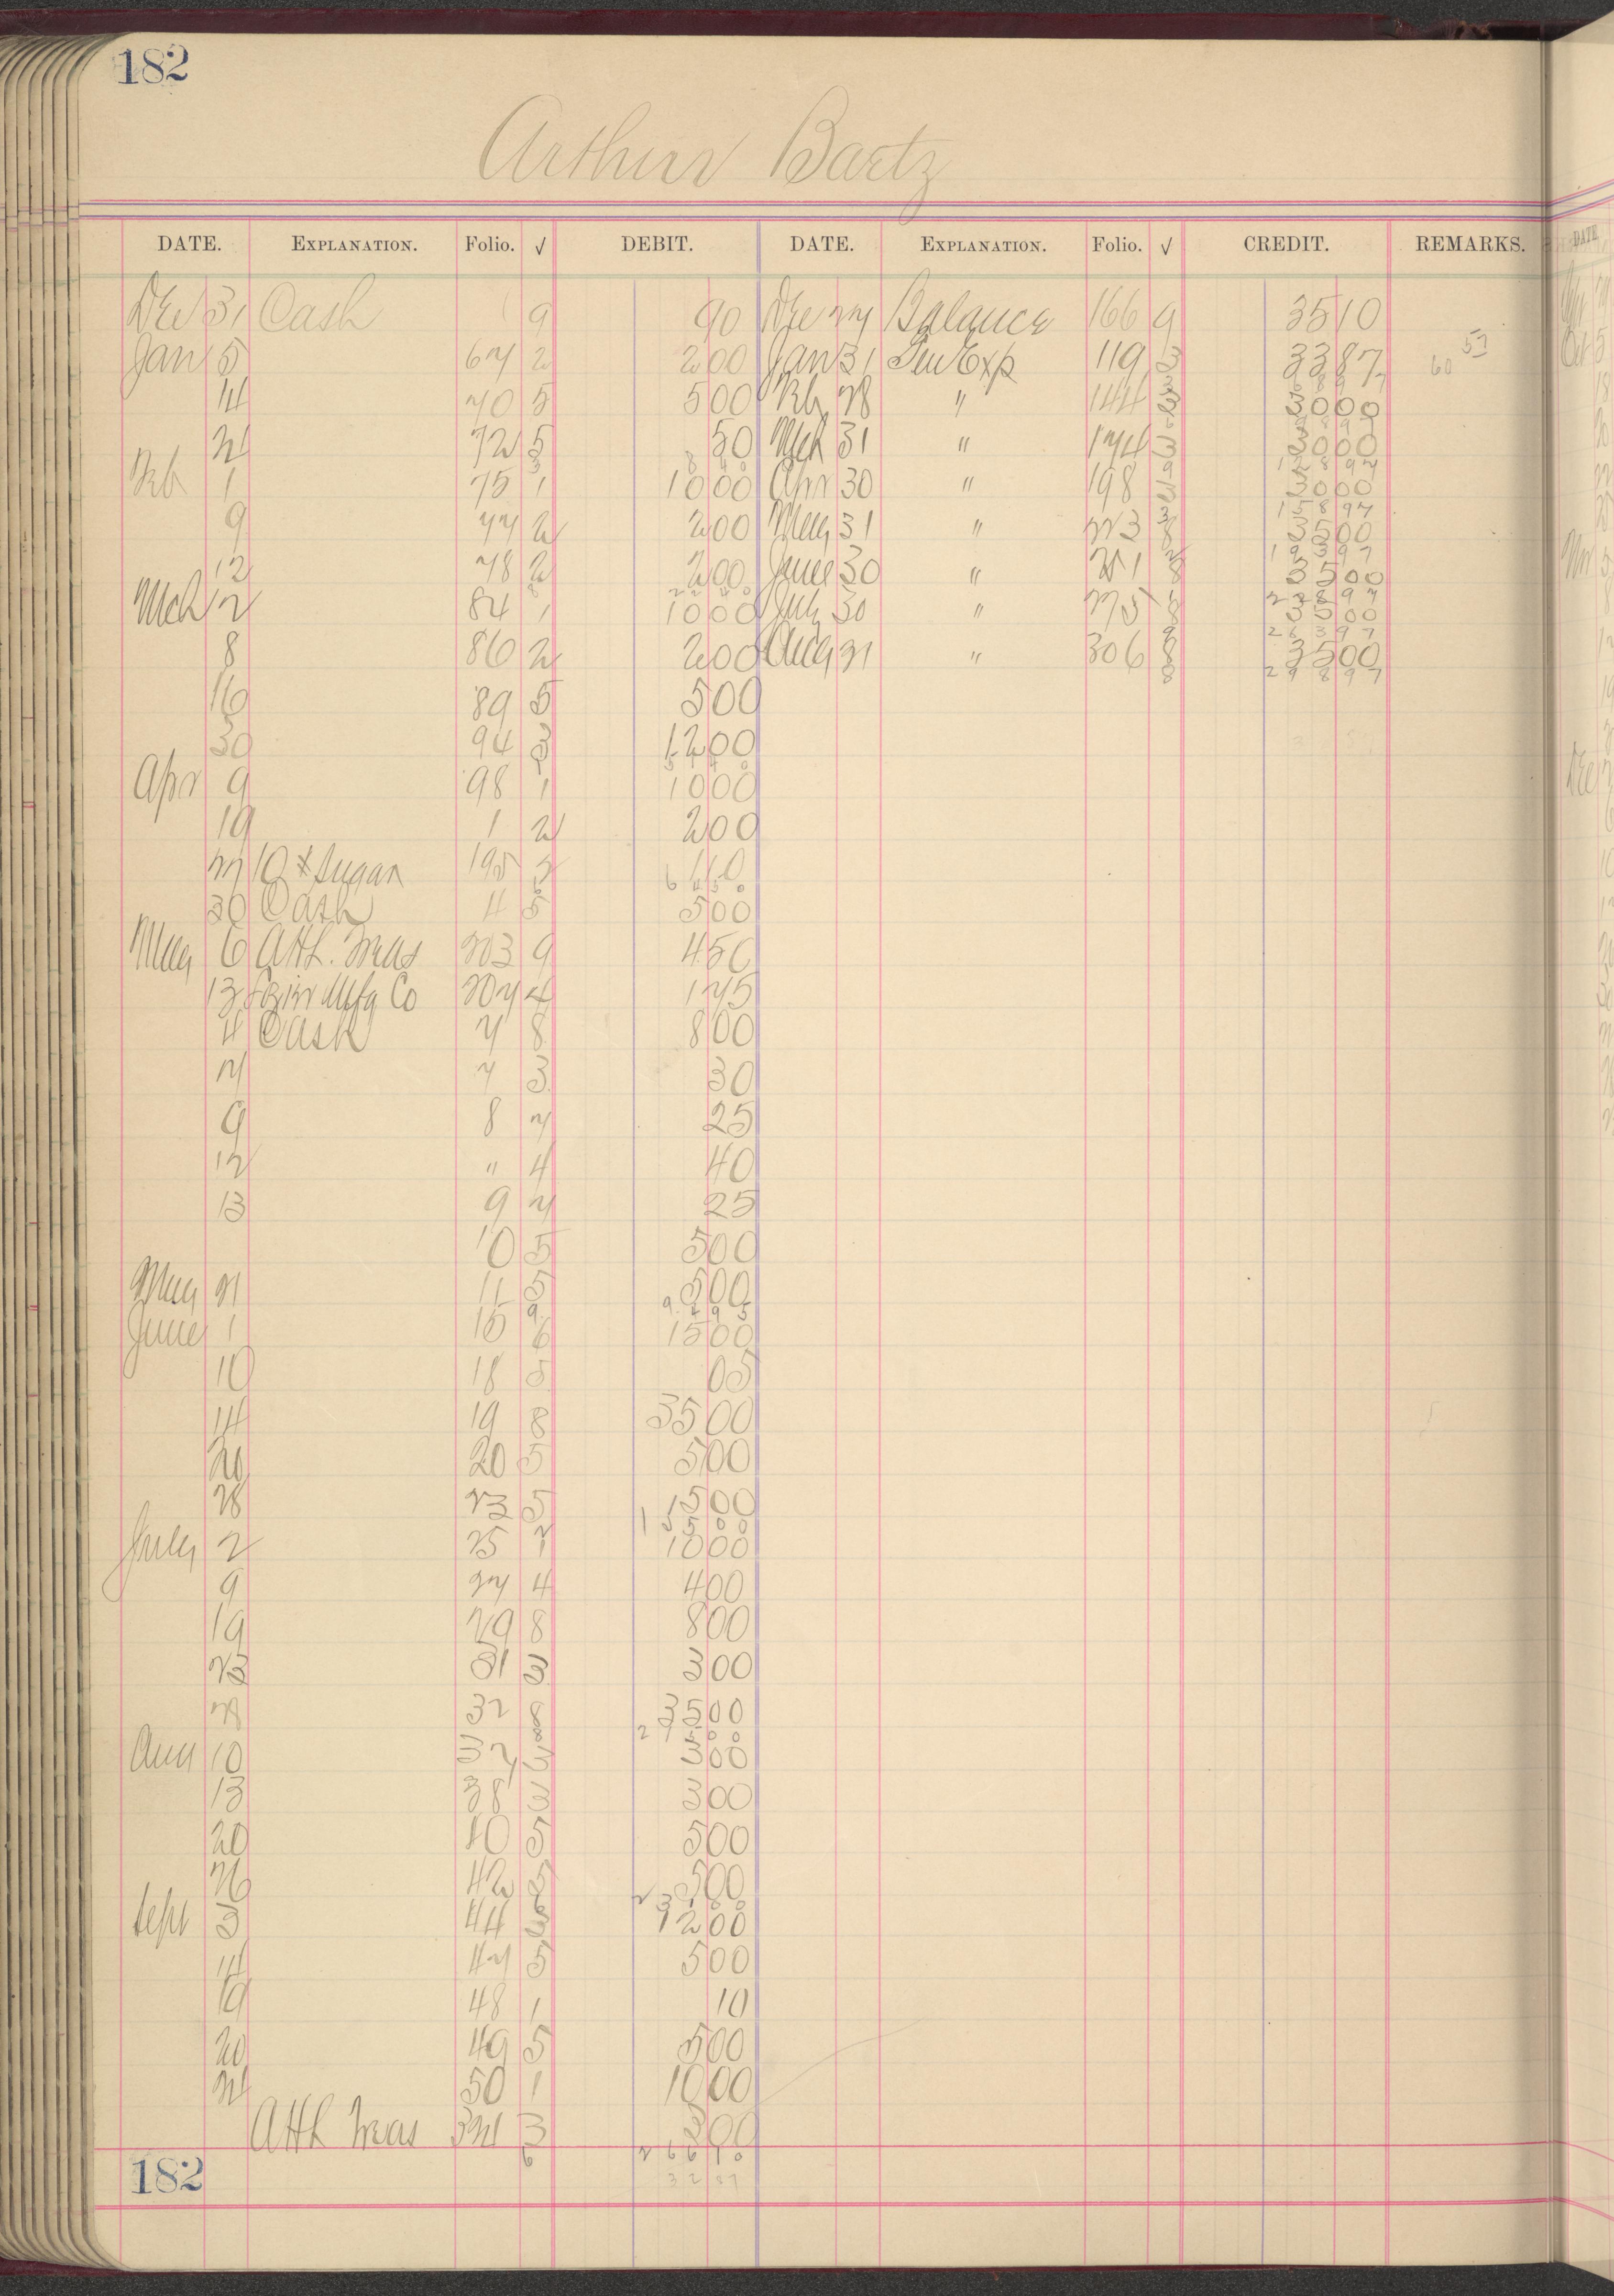 182
Arthur Bartz
DATE. EXPLANATION. Folio. √ DEBIT. DATE. EXPLANATION. Folio. √ CREDIT. REMARKS.
Dec 31 Cash 1 9 90 Dec 27 Balance 166 9 3510
Jan 5 67 2 200 Jan 31 Gen Exp 119 3 3387 60 57
14 70 5 500 Feb 28 " 144 3 3000
21 72 5 50 Mch 31 " 174 3 3000
8 40 12897
Feb 1 75 1 1000 Apr 30 " 198 3 3000
15897
9 77 2 200 May 31 " 223 8 3500
19397
12 78 2 200 June 30 " 251 8 3500
2240 22897
Mch 2 84 1 1000 July 30 " 275 8 3500
26397
8 86 2 200 Aug 31 " 306 8 3500
29897
16 89 5 500
30 94 3 1200
Apr 9 98 1 1000
19 1 2 200
27 10 # Sugar 195 2 60
6450
30 Cash 4 5 500
May 6 Ath. Treas 203 9 450
13 Mfg Co 207 4 175
4 Cash 7 8 800
7 7 3 30
9 8 7 25
12 " 4 40
13 9 7 25
10 5 500
May 21 11 5 500
9295
June 1 15 6 1500
10 18 5 05
14 19 8 3500
20 20 5 500
28 23 5 1500
July 2 25 1 1000
9 27 4 400
19 29 8 800
23 31 3 300
28 32 8 3500
Aug 10 37 3 300
13 38 3 300
20 40 5 500
26 42 5 500
Sept 3 44 3 1200
14 47 5 500
19 48 1 10
20 49 5 500
21 50 1 1000
Ath Treas 321 3 300
26610
182 3287